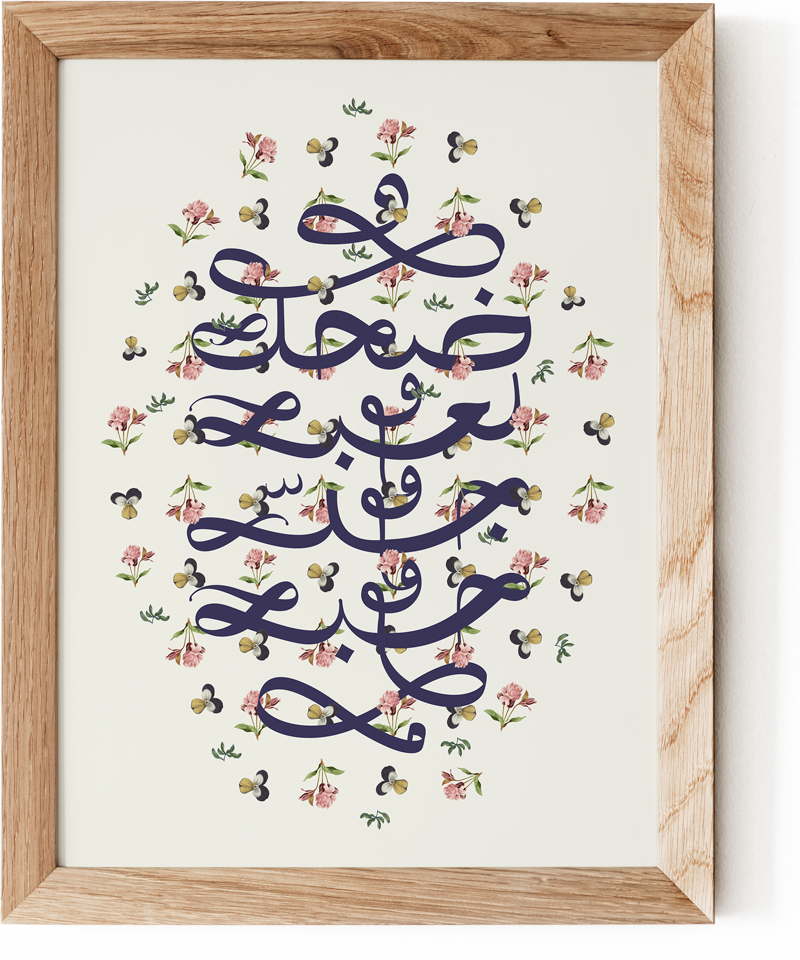 ضحك
ولعب
وجدّ
وحب